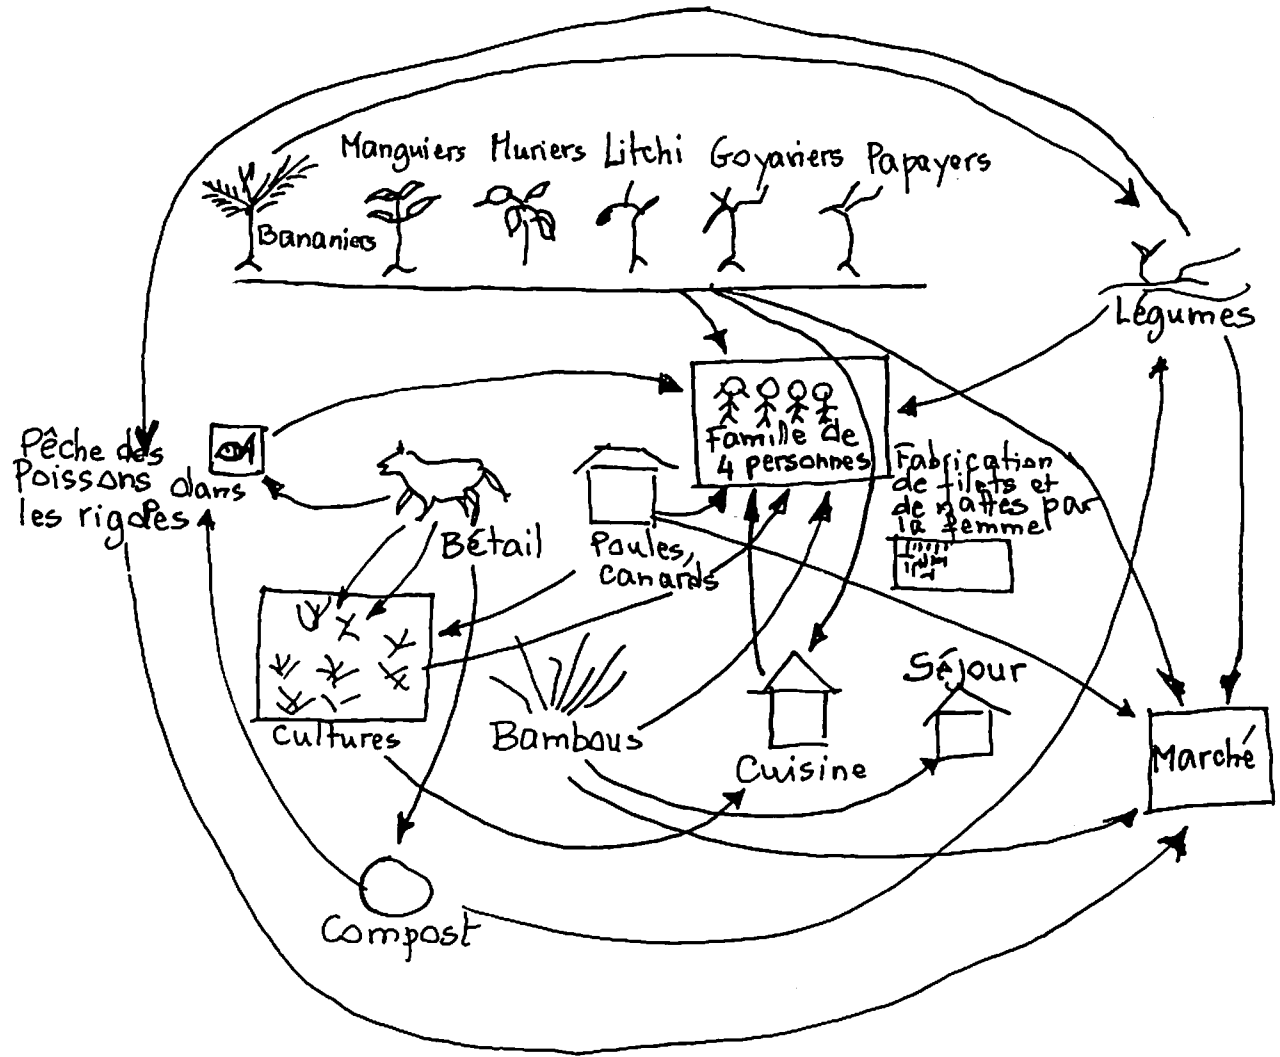 Manguiers Muriers Litchi Goyaviers Papayers
Bananiers
Légumes
Pêche des
Poissons dans
les rigoles
Bétail
Poules,
canards
Famille de
4 personnes
Fabrication
de filets et
de nattes par
la femme
Cultures
Bambous
Cuisine
Séjour
Marché
Compost